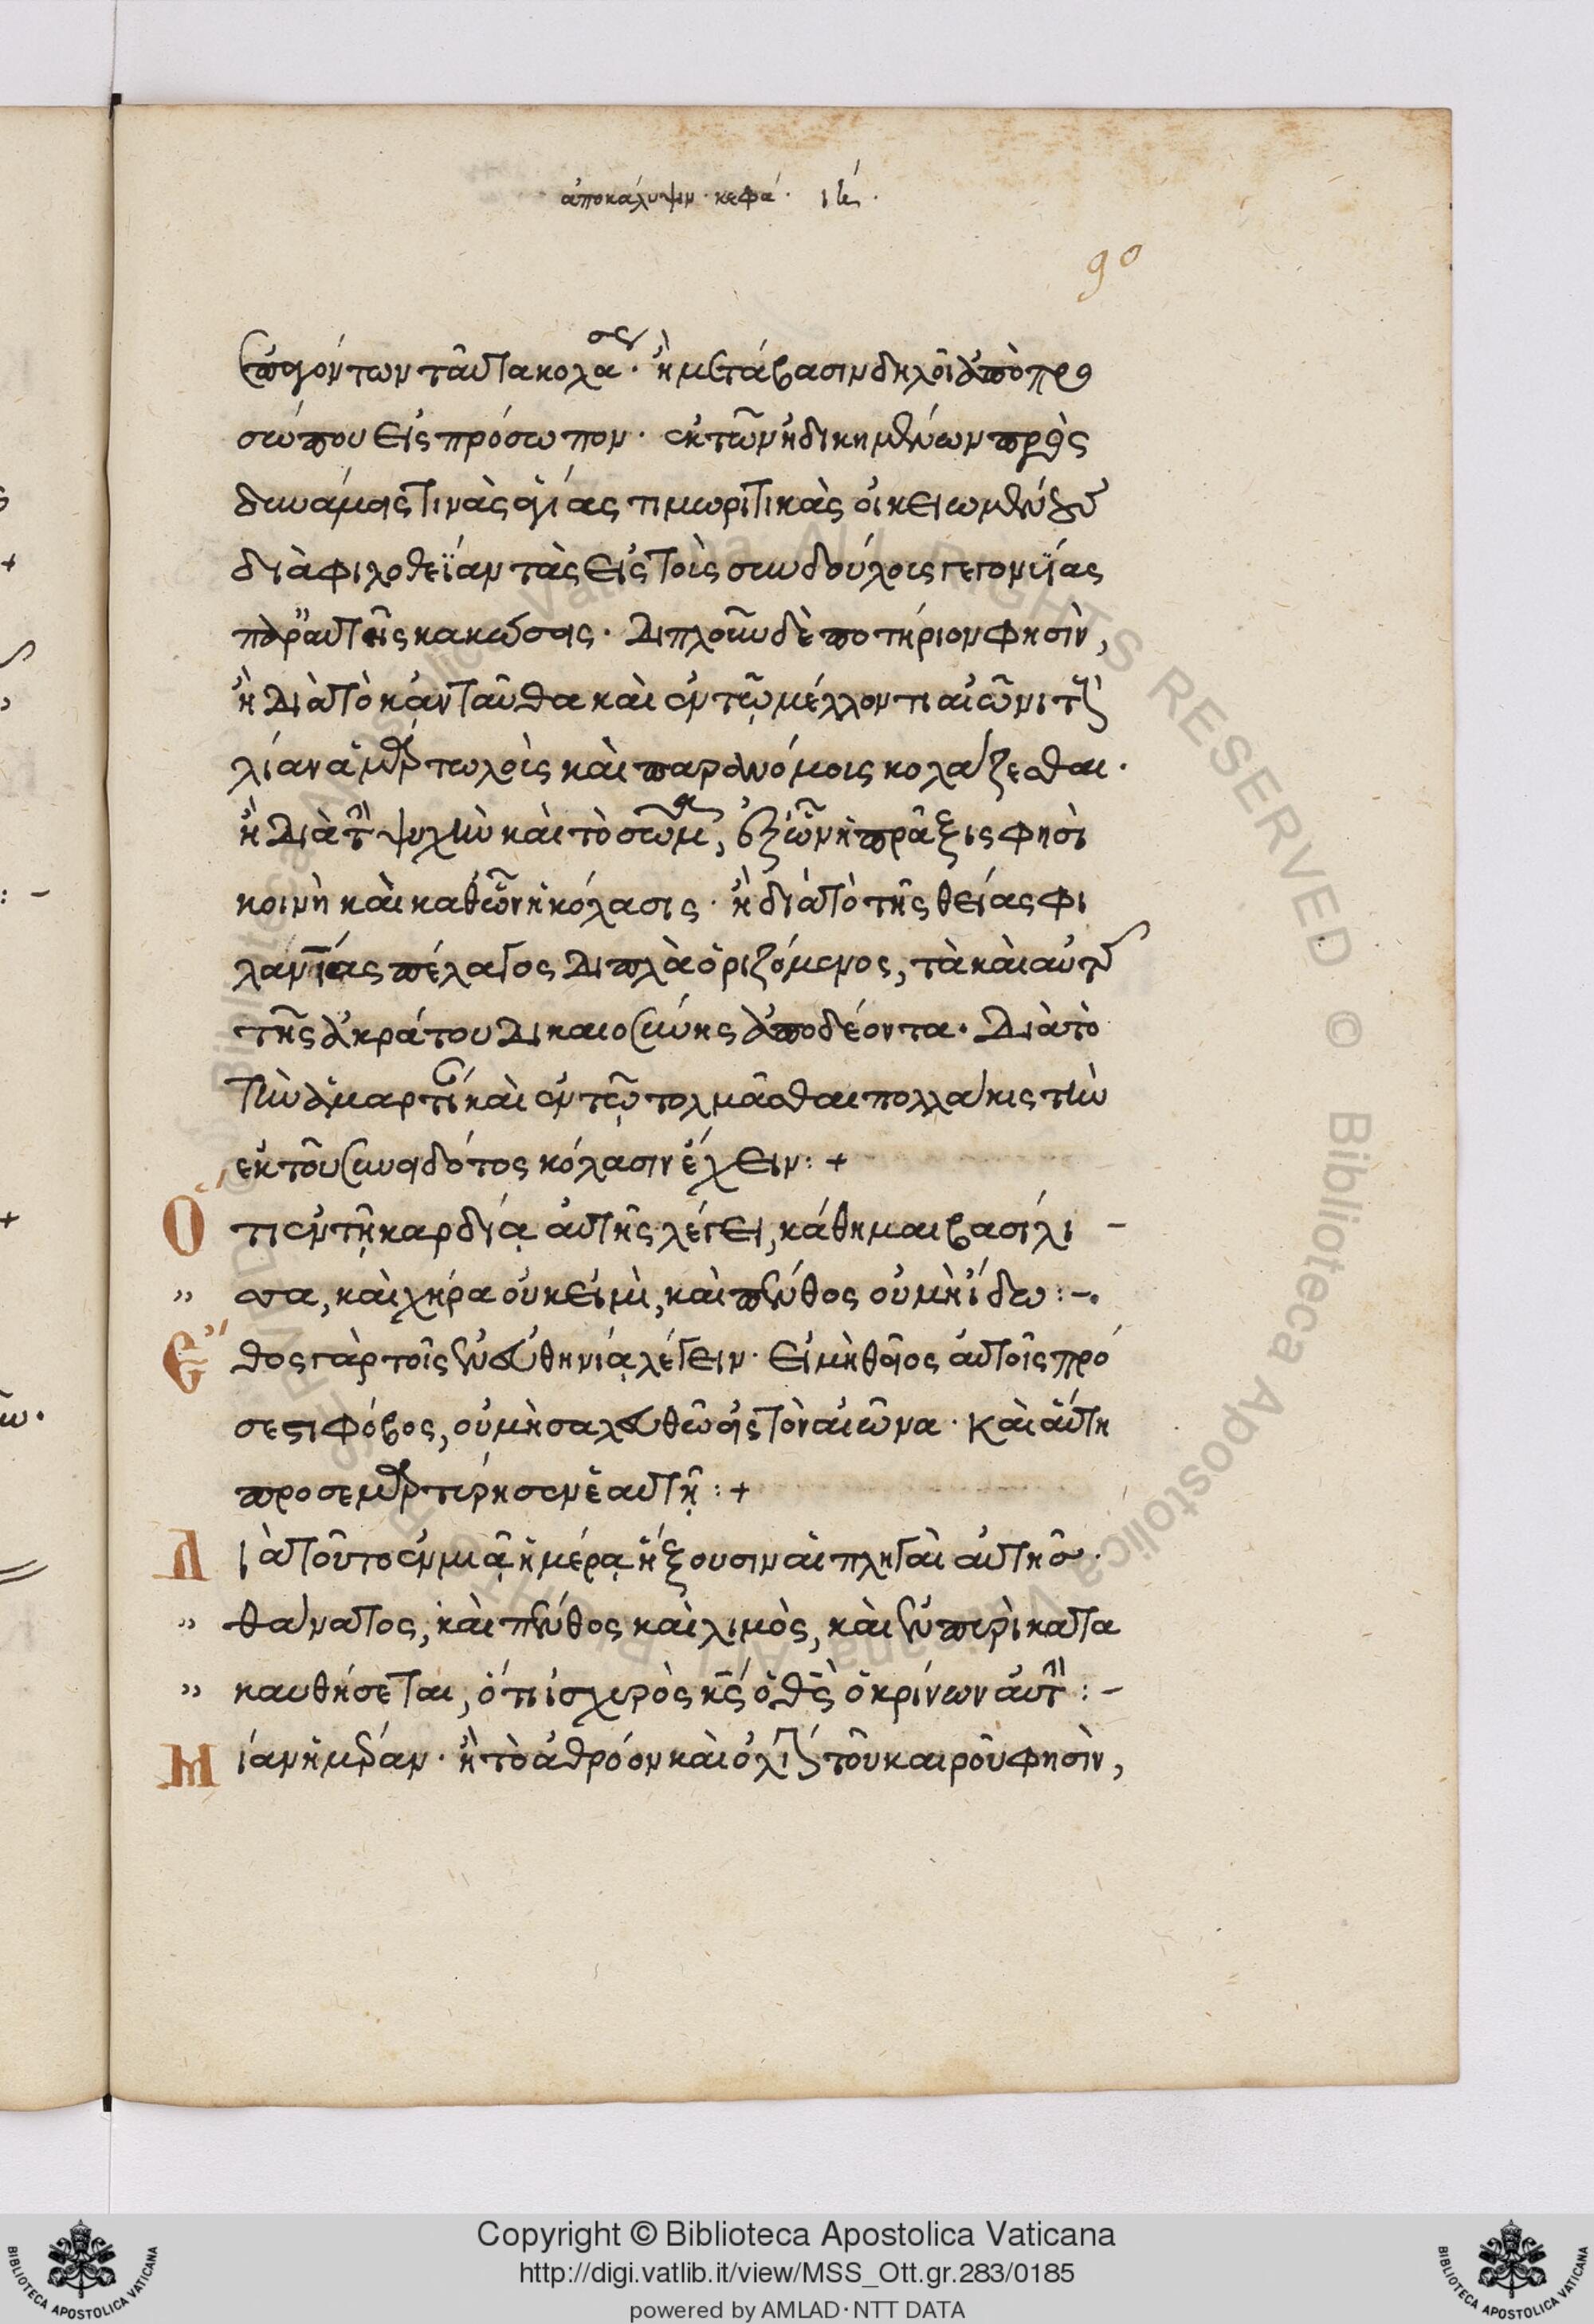 ἀποκάλυψιν · κεφά · ιϛ ·
90
ἐπαγόντων ταύτα κολάσεις · ἢ μετάβασιν δηλοῖ ἀπὸ προ
σώπου εἰς πρόσωπον · ἐκ τῶν ἠδικημένων πρὸς
δυνάμεις τινὰς ἁγίας τιμωριτικὰς οἰκειωμένας
διὰ φιλοθεΐαν τὰς εἰς τοὶς συνδούλοις γεγονυΐας
παρ' αὐτῆς κακώσεις · Διπλοῦν δὲ ποτήριον φησὶν,
ἢ Διὰ τὸ κἀνταῦθα καὶ ἐν τῷ μέλλοντι αἰῶνι τοὺς
λίαν ἁμαρτωλοὶς καὶ παρανόμοις κολάζεσθαι ·
ἢ Διὰ τὴν ψυχὴν καὶ τὸ σῶμα, ἐξ ὧν ἡ πρᾶξις φησὶ
κοινὴ καὶ καθ' ὧν ἡ κόλασις · ἢ διὰ τὸ τῆς θείας φι
λανίας πέλαγος Διπλὰ ὁριζόμενος, τὰ καὶ αὐτῶν
τῆς ἀκράτου Δικαιοσύνης ἀποδέοντα · Διὰ τὸ
τὴν ἁμαρτίαν καὶ ἐν τῷ τολμᾶσθαι πολλάκις τὴν
ἐκ τοῦ συνειδότος κόλασιν ἔχειν : +
Ὅτι ἐν τῇ καρδίᾳ αὐτῆς λέγει, κάθημαι βασίλι –
" σσα, καὶ χήρα οὐκ εἰμὶ, καὶ πένθος οὐ μὴ ἴδω : – .
Ἔθος γὰρ τοῖς ἐν εὐθηνίᾳ λέγειν · εἰ μὴ θεῖος αὐτοῖς πρό
σεστι φόβος, οὐ μὴ σαλευθῶ εἰς τὸν αἰῶνα · Καὶ αὕτη
προσεμαρτύρησεν ἑαυτῇ : +
Διὰ τοῦτο ἐν μιᾷ ἡμέρᾳ ἥξουσιν αἱ πληγαὶ αὐτῆς ·
" θάνατος, καὶ πένθος καὶ λιμὸς, καὶ ἐν πυρὶ κατα
" καυθήσεται, ὅτι ἰσχυρὸς κς ὁ θς ὁ κρίνων αὐτὴν : –
Μίαν ἡμέραν · ἢ τὸ ἀθρόον καὶ ὀλίγον τοῦ καιροῦ φησὶν,
Copyright © Biblioteca Apostolica Vaticana
http://digi.vatlib.it/view/MSS_Ott.gr.283/0185
powered by AMLAD·NTT DATA